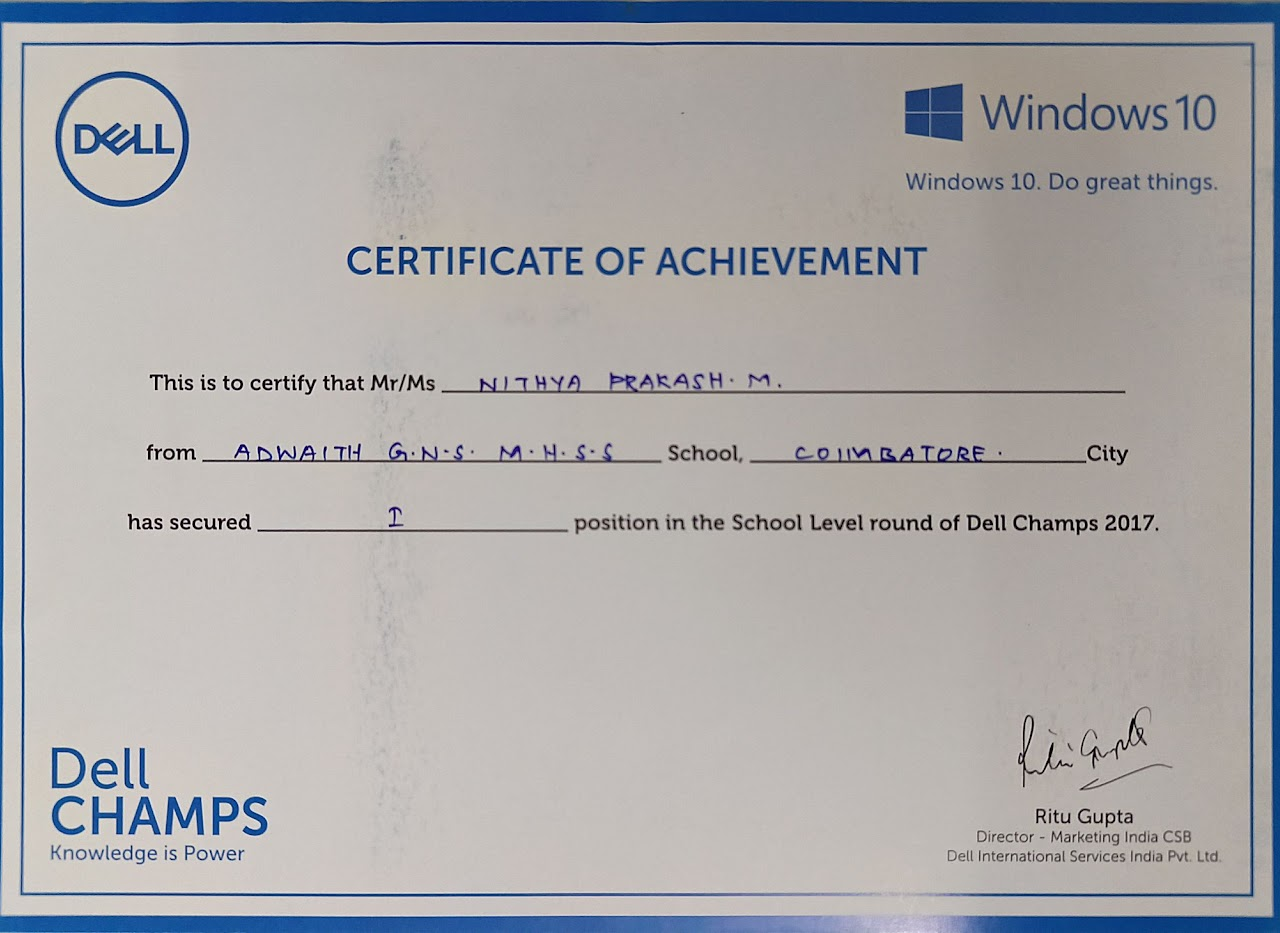 DELL
Windows 10
Windows 10. Do great things.
CERTIFICATE OF ACHIEVEMENT
This is to certify that Mr/Ms NITHYA PRAKASH. M.
from ADWAITH G.N.S. M.H.S.S School, COIMBATORE. City
has secured I position in the School Level round of Dell Champs 2017.
Dell
CHAMPS
Knowledge is Power
Ritu Gupta
Ritu Gupta
Director - Marketing India CSB
Dell International Services India Pvt. Ltd.